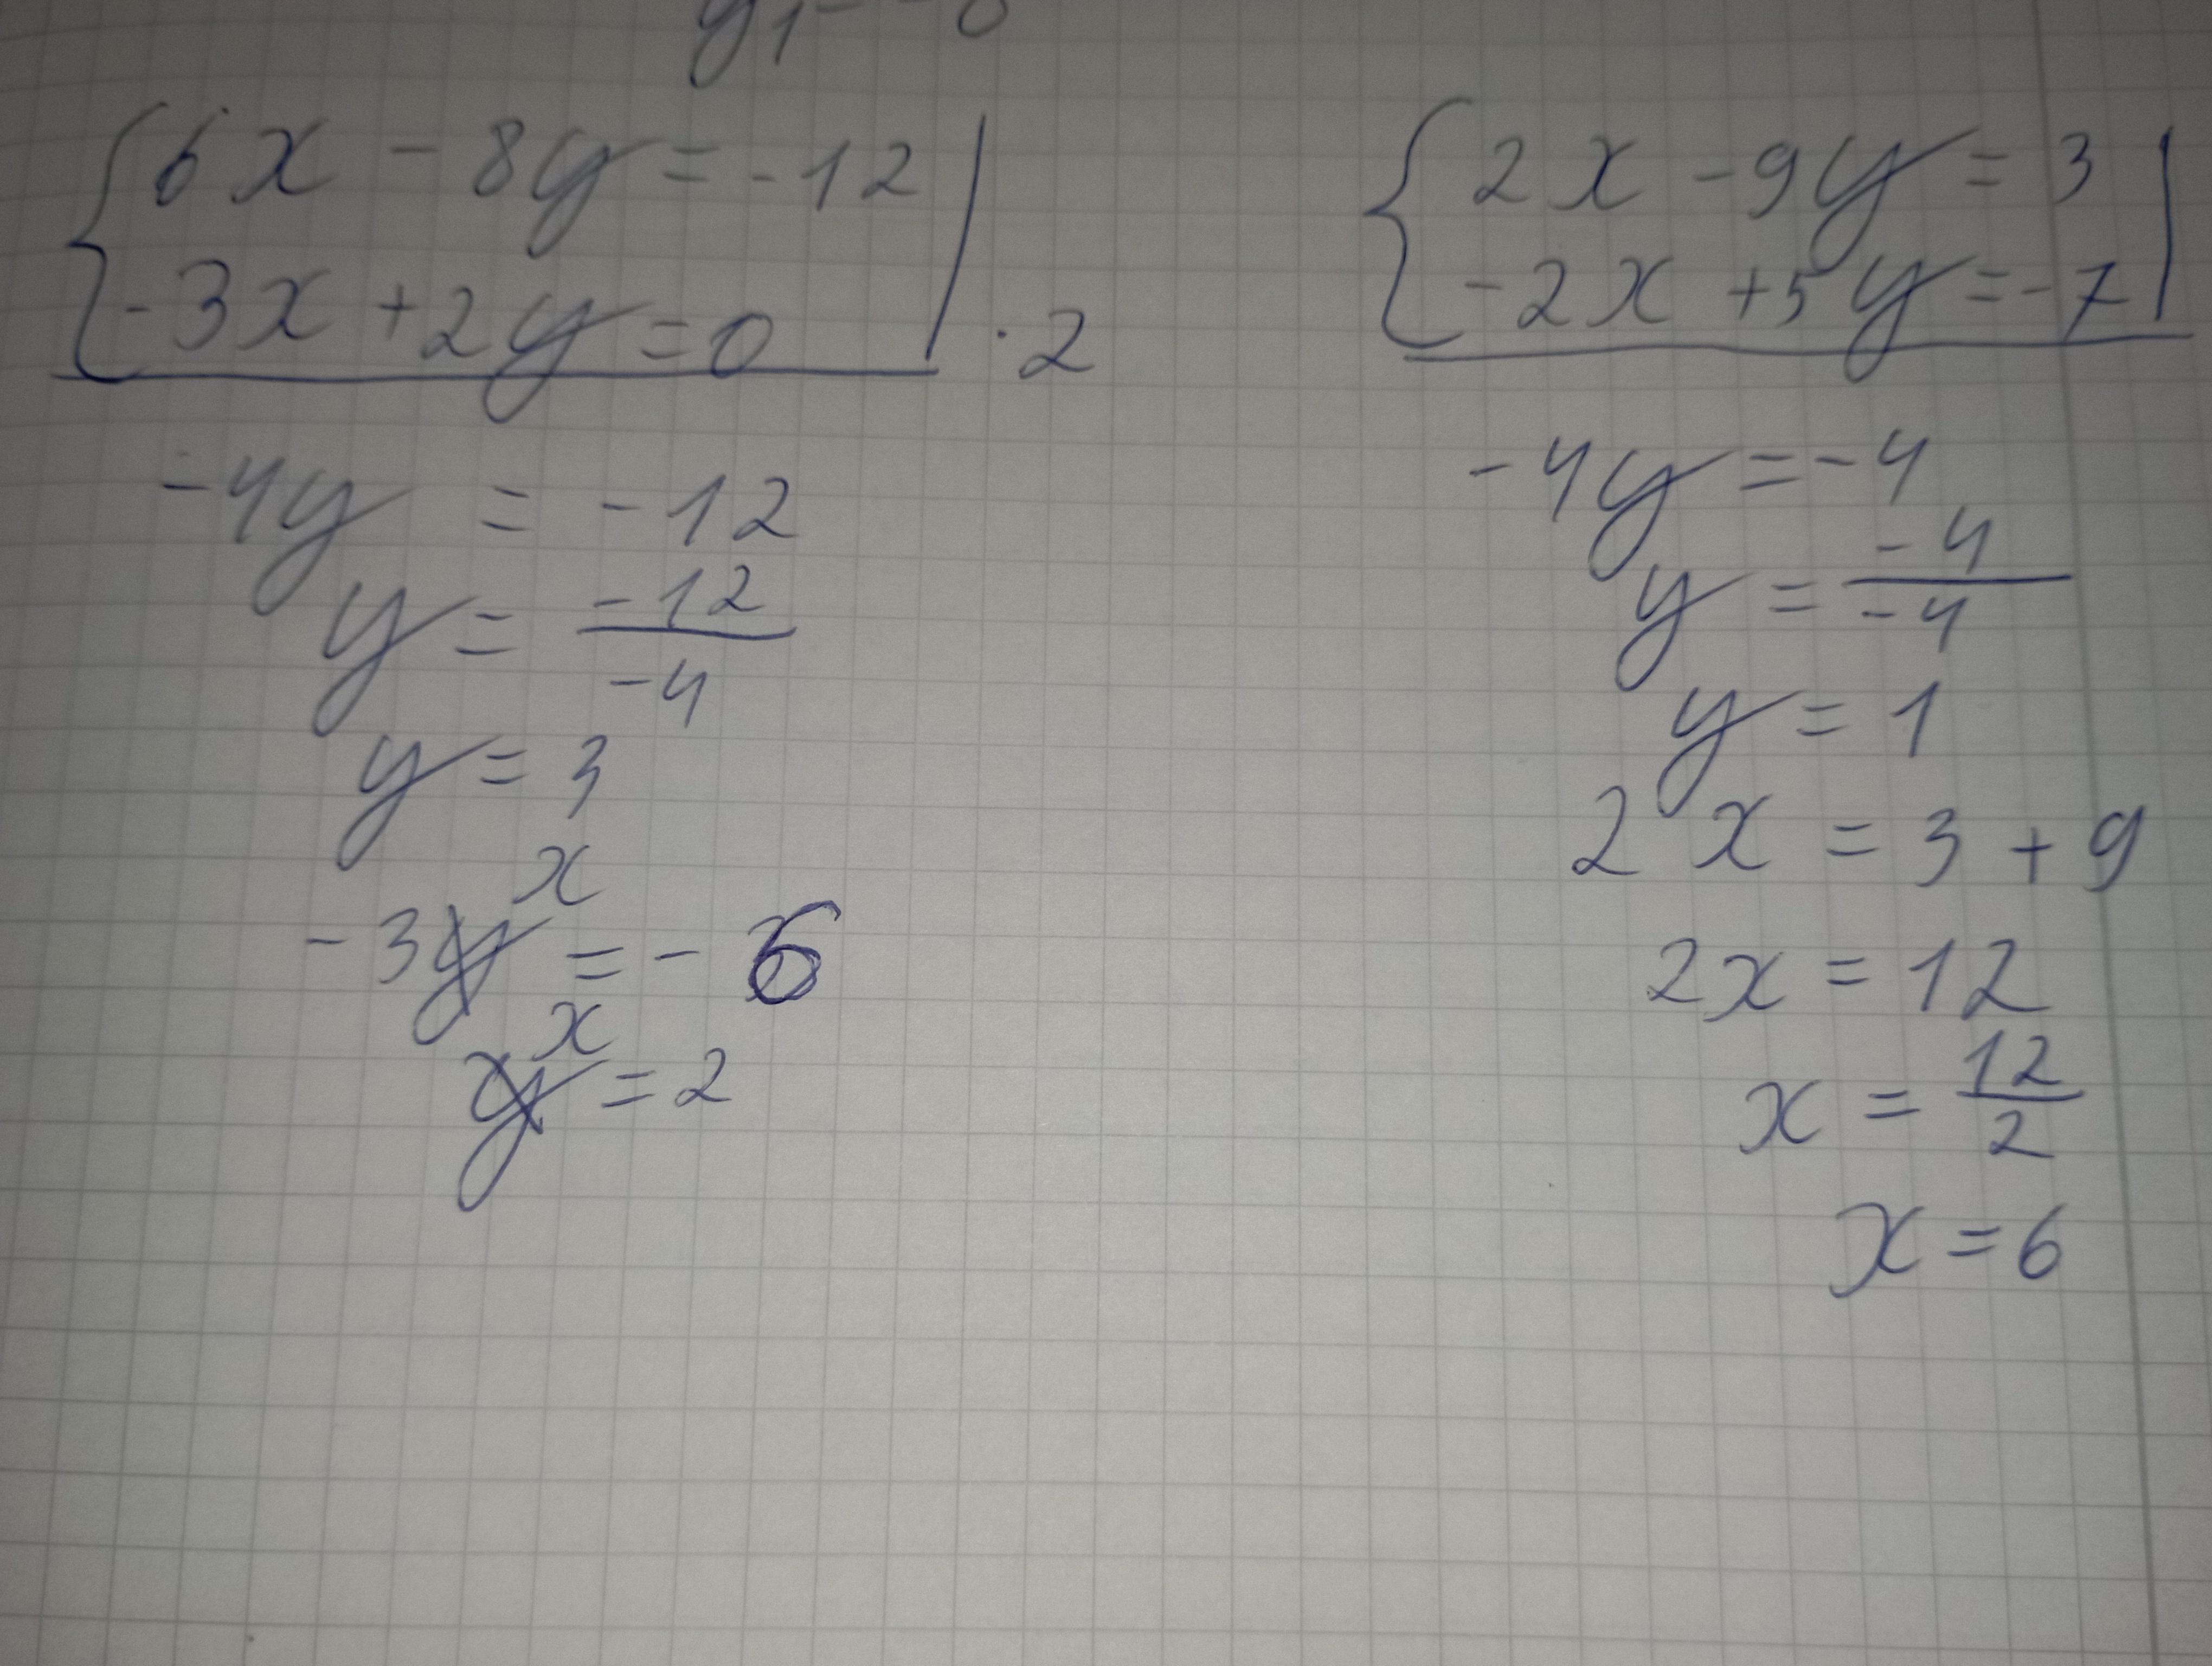 6x - 8y = -12
-3x + 2y = 0 | · 2
-4y = -12
y = -12/-4
y = 3
-3x = -6
x = 2
2x - 9y = 3
-2x + 5y = -7
-4y = -4
y = -4/-4
y = 1
2x = 3 + 9
2x = 12
x = 12/2
x = 6